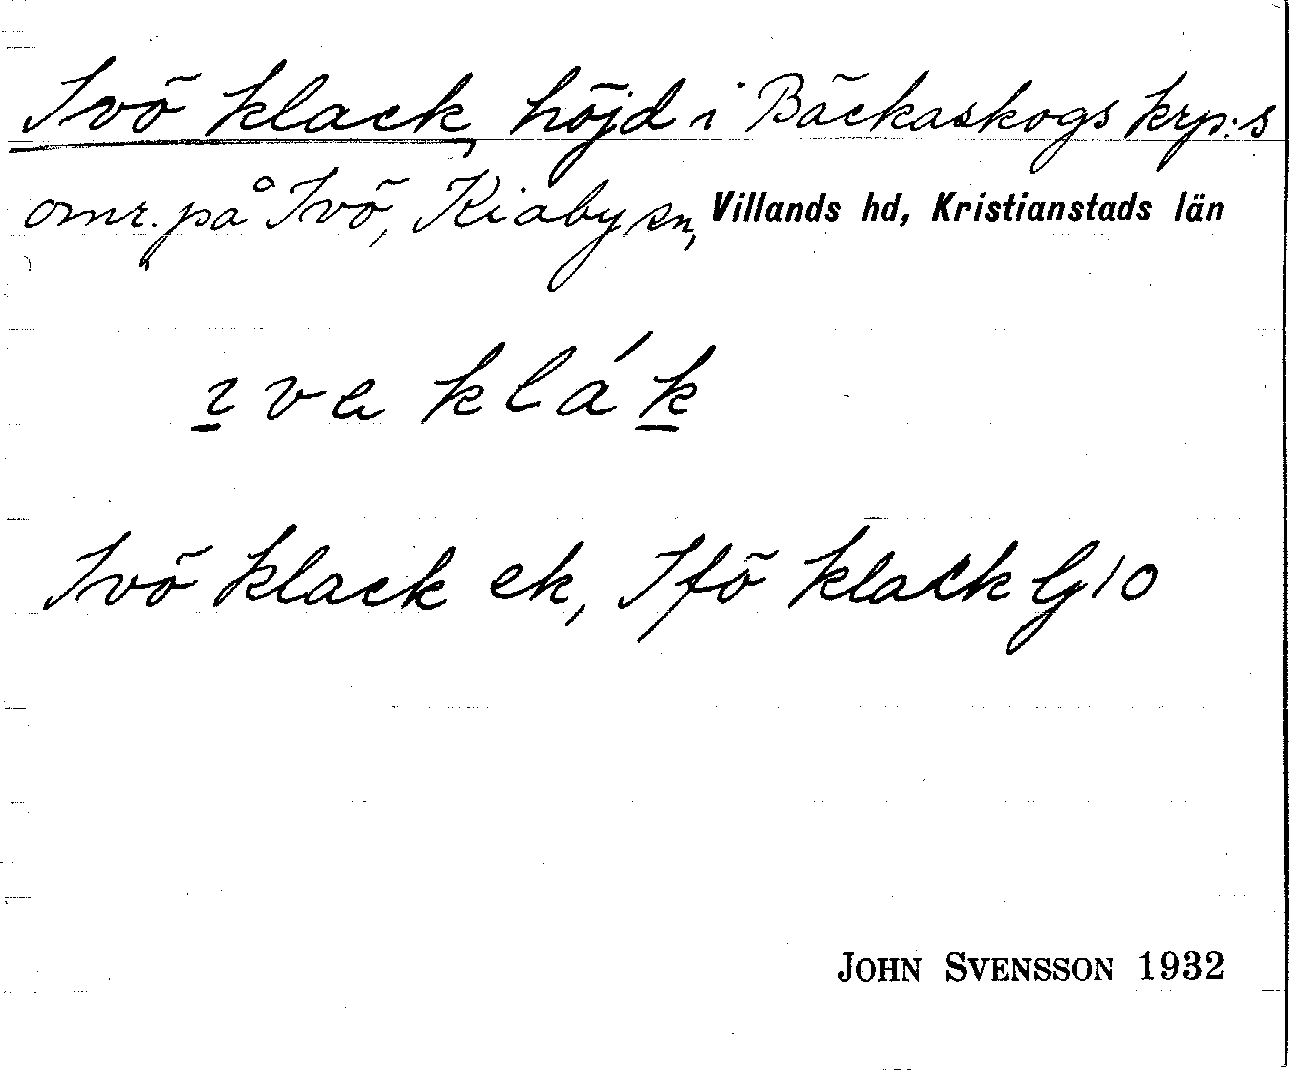 Ivö klack, höjd i Bäckaskogs krp:s
omr. på Ivö, Kiaby sn, Villands hd, Kristianstads län
ıva klák
Ivö klack ek, Ifö klack G10
JOHN SVENSSON 1932